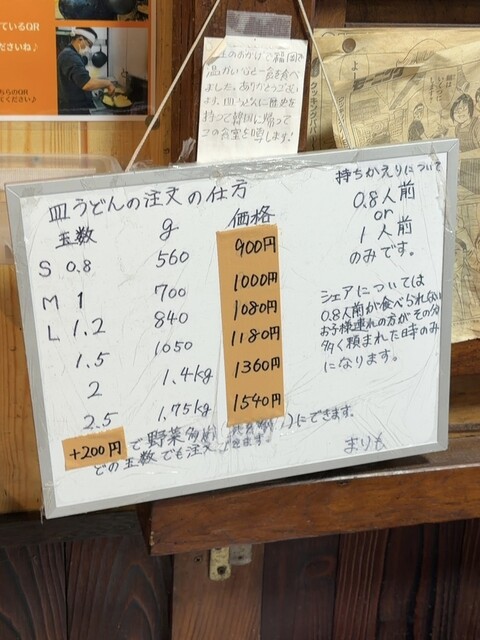 ているQR
ださいね♪
ちらのQR
ください♪
のおかげで韓国で
温かいひと時を食べ
ました。ありがとうござい
ます。皿うどんに歴史を
持って韓国に帰って
この食堂を
皿うどんの注文の仕方
玉数 g 価格
S 0.8 560 900円
M 1 700 1000円
L 1.2 840 1080円
1.5 1050 1180円
2 1.4kg 1360円
2.5 1.75kg 1540円
+200円 で野菜 にできます。
どの玉数でも注文
持ちかえりについて
0.8人前
or
1人前
のみです。
シェアについては
0.8人前が食べられない
お子様連れの方がその分
多く頼まれた日時のみ
になります。
まりも
クッキングパパ